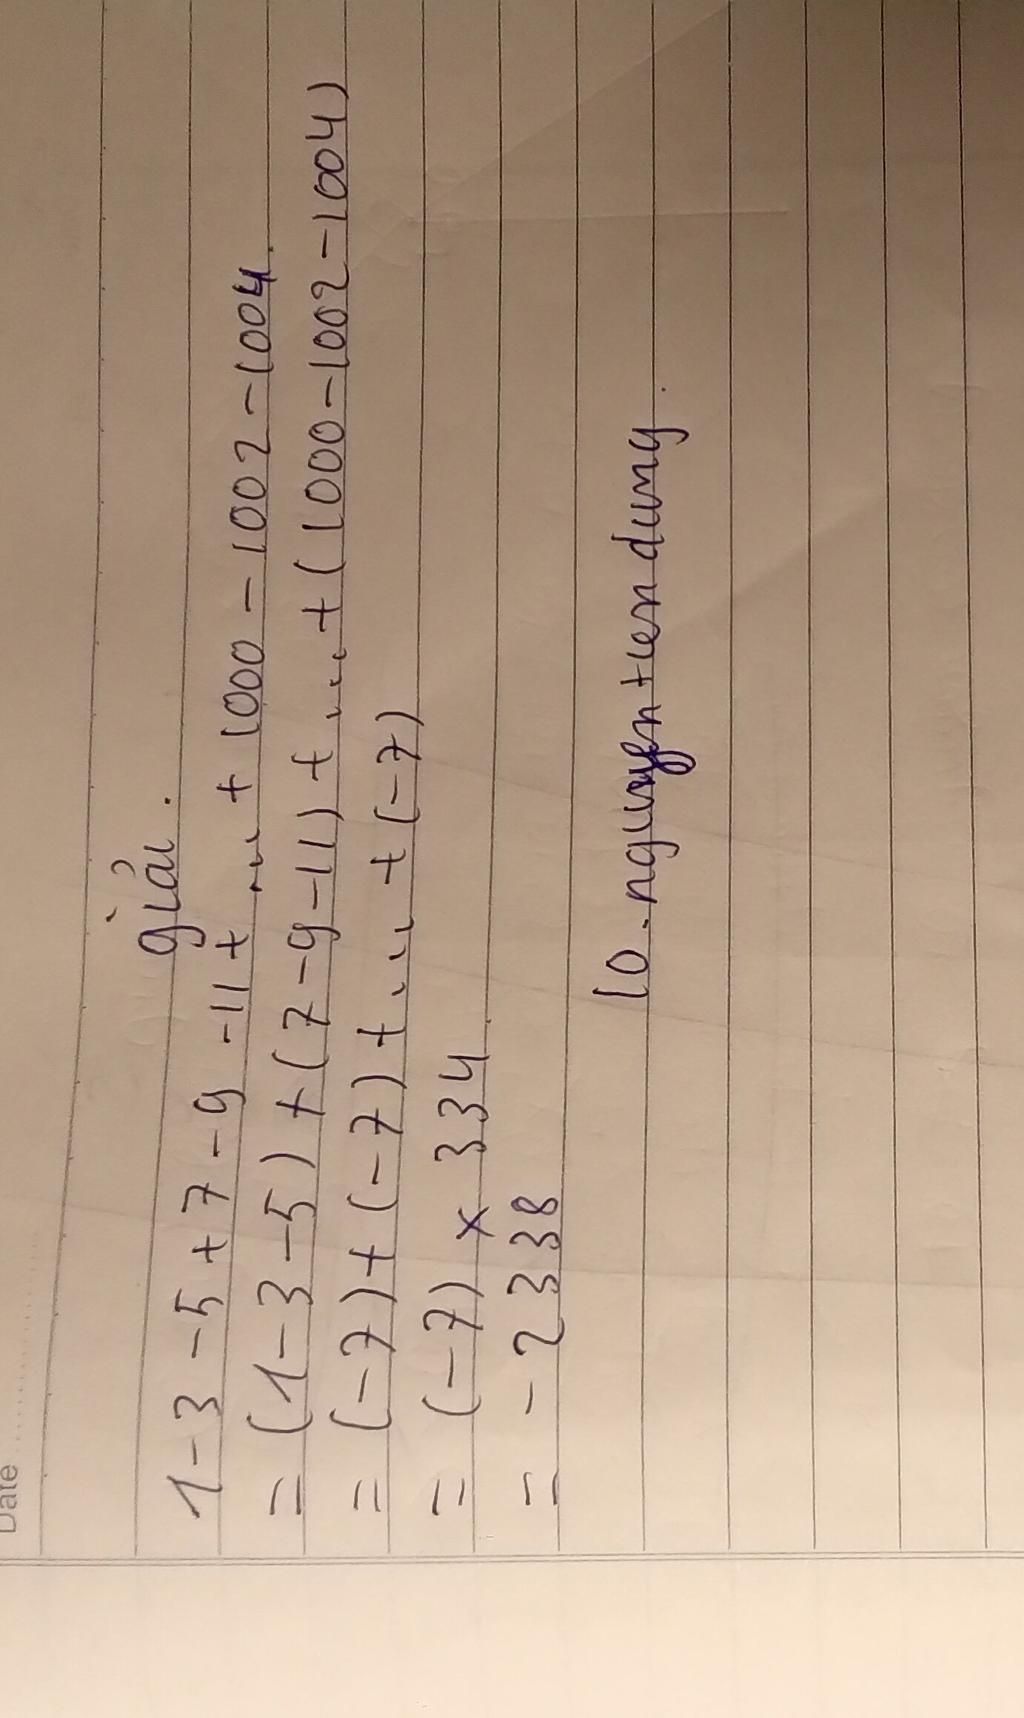 Date
giải.
1-3-5+7-9-11+...+1000-1002-1004.
=(1-3-5)+(7-9-11)+...+(1000-1002-1004)
=(-7)+(-7)+...+(-7)
=(-7)×334
=-2338
10.nguyentiendung.